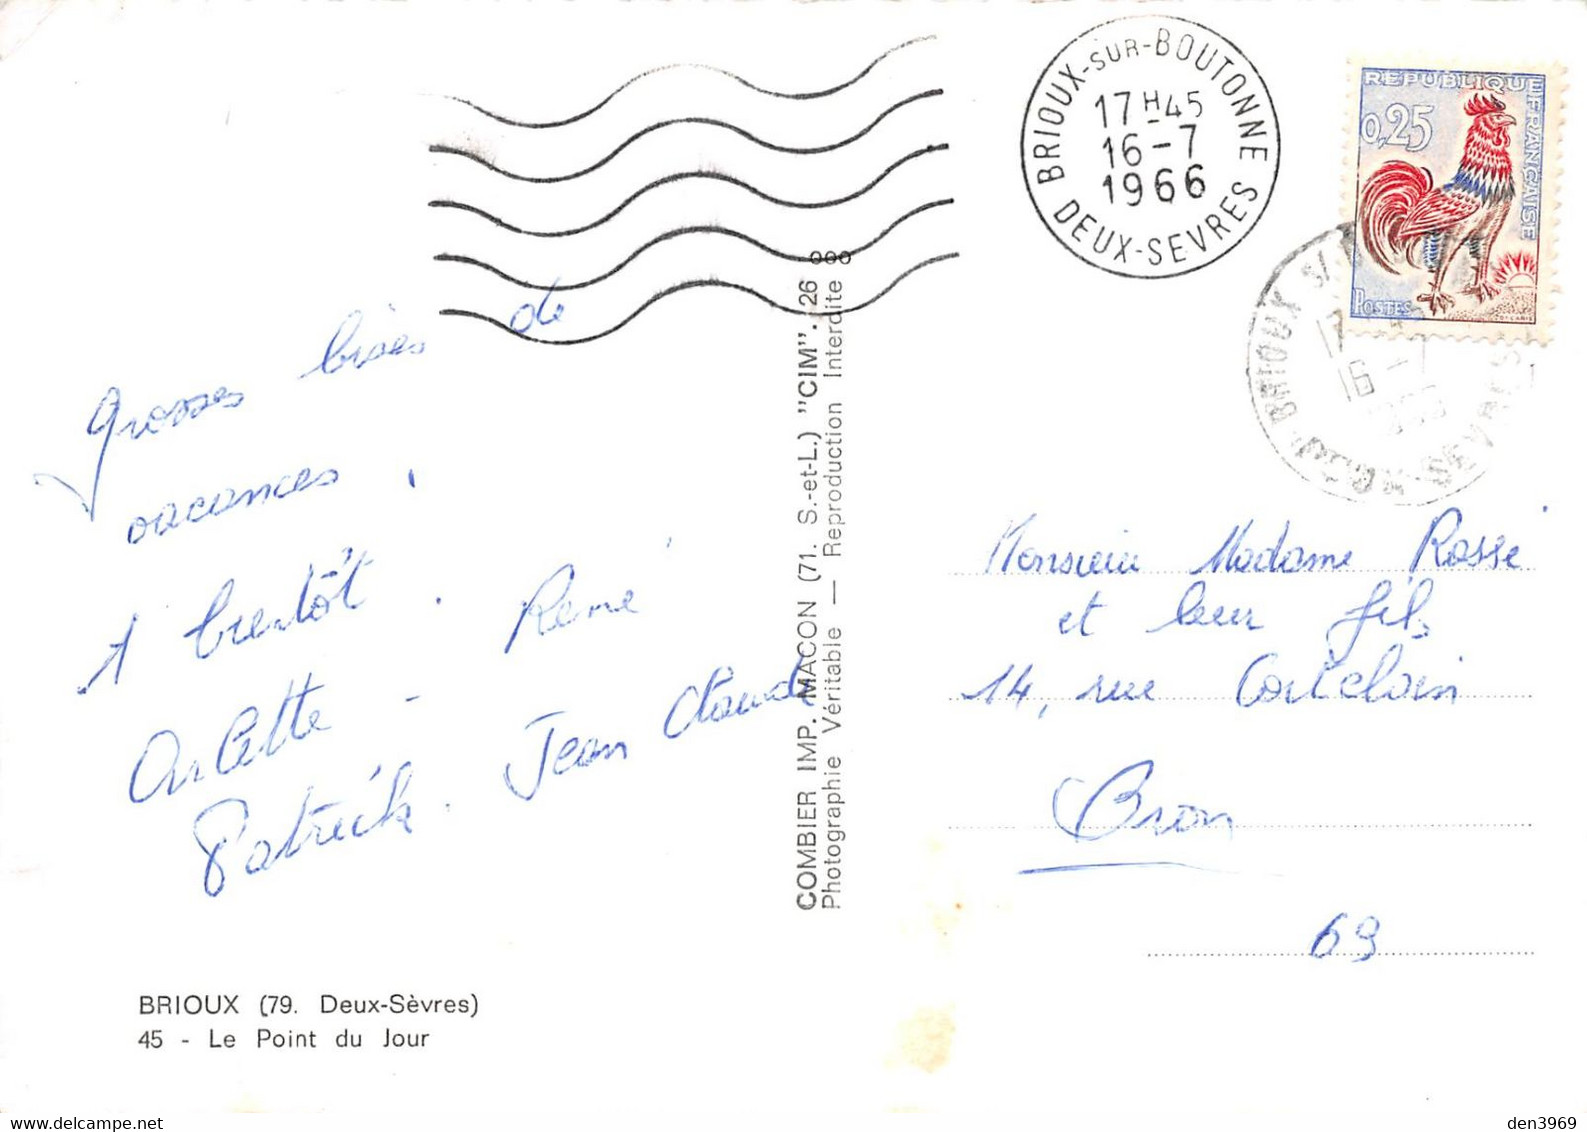 BRIOUX-SUR-BOUTONNE
17H45
16-7
1966
DEUX-SEVRES
REPUBLIQUE FRANCAISE
0,25
POSTES
BRIOUX
16 -7
SEVRES
Grosses bises de
vacances.
A bientôt. René
Arlette -
Patrick. Jean Claude
COMBIER IMP. MACON (71. S.-et-L.) "CIM". 26
Photographie Véritable — Reproduction Interdite
Monsieur Madame Rosse
et leur fils
14, rue
Bron
69
BRIOUX (79. Deux-Sèvres)
45 - Le Point du Jour
den3969